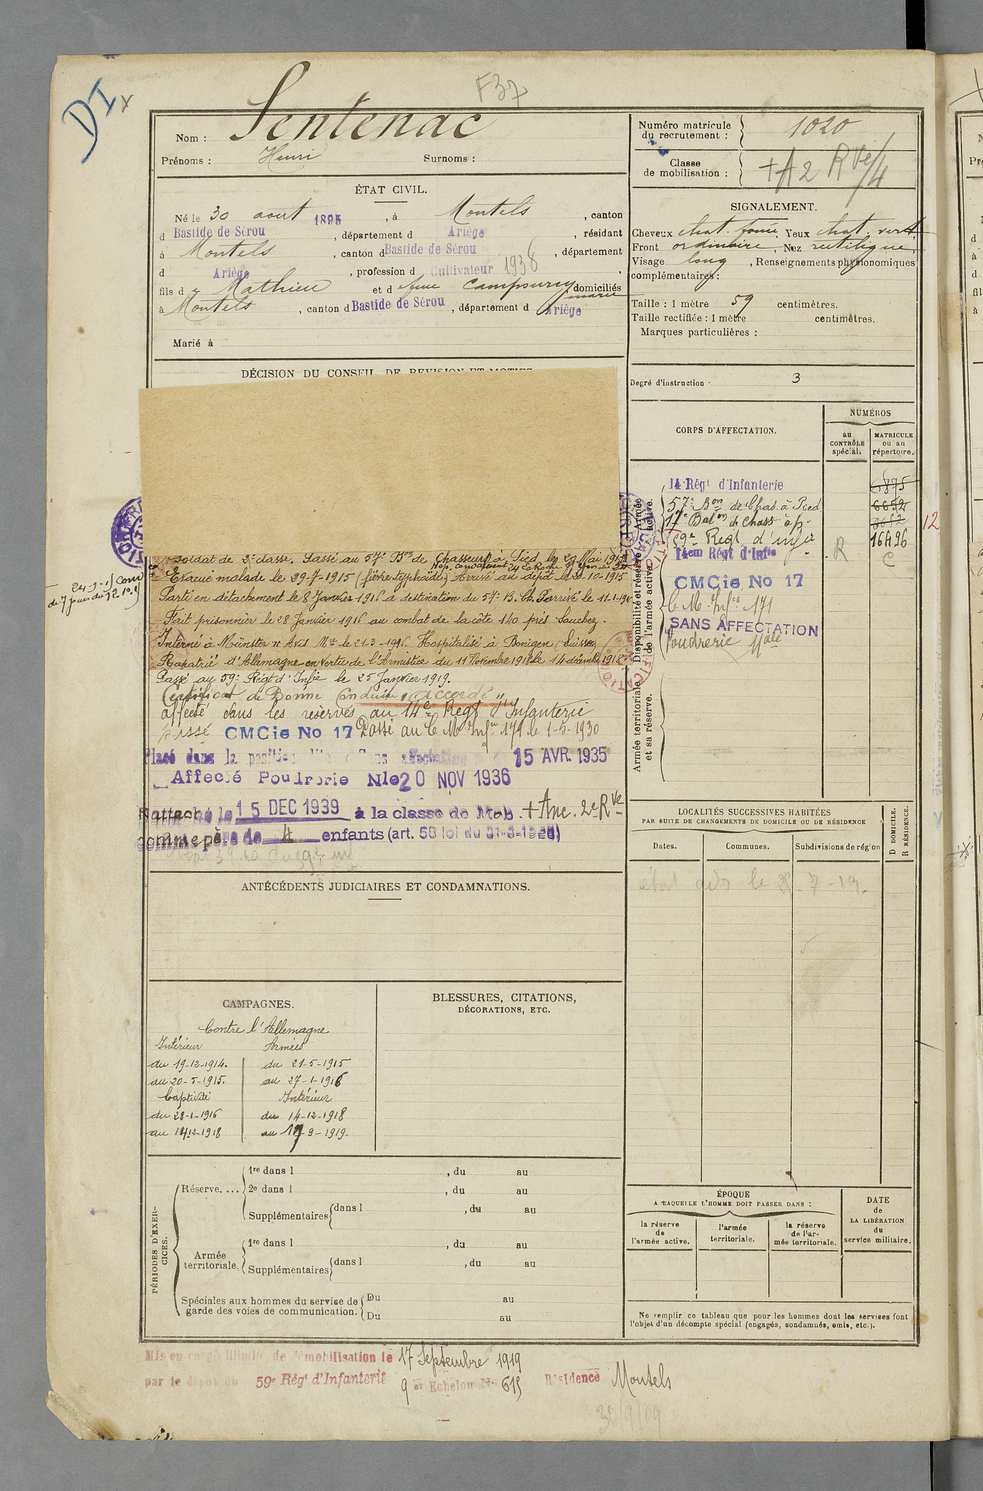 DI x
F37
Nom : Sentenac
Prénoms : Henri Surnoms :
Numéro matricule du recrutement : 1020
Classe de mobilisation : + A 2 RVe/4
ÉTAT CIVIL.
Né le 30 aout 1895, à Montels, canton
d Bastide de Sérou, département d Ariége, résidant
à Montels, canton d Bastide de Sérou, département
d Ariége, profession d Cultivateur 1938
fils d Mathieu et d domiciliés
à Montels, canton d Bastide de Sérou, département d Ariége
Marié à
SIGNALEMENT.
Cheveux chat. Yeux chat. vert
Front ordinaire, Nez rectiligne
Visage long, Renseignements physionomiques
complémentaires :
Taille : 1 mètre 59 centimètres.
Taille rectifiée : 1 mètre centimètres.
Marques particulières :
Degré d'instruction : 3
DÉCISION DU CONSEIL DE REVISION ET MOTIFS
CORPS D'AFFECTATION.
NUMÉROS
au CONTRÔLE spécial.
MATRICULE ou au répertoire.
Armée active.
14 Régt d'Infanterie
57e Bon de Chas. à Pied
17e Balon de Chass. à p.
59e Regt d'infie 16496
12
Disponibilité et réserve de l'armée active.
14em Régt d'Infie R C
CMCie No 17
C. M. Infie 171
SANS AFFECTATION
Poudrerie Nale
Armée territoriale et sa réserve.
soldat de 2e classe. Passé au 57e Bon de Chasseurs à Pied le 29 Mai 1915
Evacué malade le 29-7-1915 (fièvre typhoïde) Arrivé au dépôt le 30-10-1915
Parti en détachement le 8 Janvier 1916 à destination du 57e B. Ch. P. arrivé le 11-1-1916
Fait prisonnier le 28 Janvier 1916 au combat de la côte 140 près Souchez.
Interné à Münster Avis Mel le 21-3-1916. Hospitalisé à Bönigen (Suisse)
Rapatrié d'Allemagne en vertu de l'Armistice du 11 Novembre 1918 le 14 décembre 1918
Passé au 59e Régt d'Infie le 25 Janvier 1919.
Certificat de Bonne Conduite "accordé"
affecté dans les réserves au 14e Regt d'Infanterie
passé CMCie No 17 Passé au C. M. Infie 171 le 1-5-1930
Placé dans la position dite Sans affectation 15 AVR. 1935
Affecté Poudrerie Nle 20 NOV 1936
Rattaché le 15 DEC 1939 à la classe de Mob. + Anc. 2e RVe
comme père de 4 enfants (art. 58 loi du 31-3-1928)
ANTÉCÉDENTS JUDICIAIRES ET CONDAMNATIONS.
LOCALITÉS SUCCESSIVES HABITÉES
PAR SUITE DE CHANGEMENTS DE DOMICILE OU DE RÉSIDENCE
Dates. Communes. Subdivisions de région
D DOMICILE. R RÉSIDENCE.
CAMPAGNES.
Contre l'Allemagne
Intérieur Armées
du 19-12-1914. du 21-5-1915
au 20-5-1915. au 27-1-1916
Captivité Intérieur
du 28-1-1916 du 14-12-1918
au 13-12-1918 au 17-9-1919.
BLESSURES, CITATIONS,
DÉCORATIONS, ETC.
PÉRIODES D'EXERCICES.
Réserve....
1re dans l , du au
2e dans l , du au
Supplémentaires dans l , du au
Armée territoriale.
1re dans l , du au
Supplémentaires dans l , du au
Spéciales aux hommes du service de garde des voies de communication.
Du au
Du au
ÉPOQUE
A LAQUELLE L'HOMME DOIT PASSER DANS :
la réserve de l'armée active.
l'armée territoriale.
la réserve de l'armée territoriale.
DATE de LA LIBÉRATION du service militaire.
Ne remplir ce tableau que pour les hommes dont les services font
l'objet d'un décompte spécial (engagés, condamnés, omis, etc.).
Mis en congé illimité de démobilisation le 17 Septembre 1919
par le dépôt du 59e Régt d'Infanterie 9e Echelon No 615 Résidence Montels